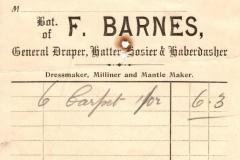 M
Bot. of F. BARNES,
General Draper, Hatter Hosier & Haberdasher
Dressmaker, Milliner and Mantle Maker.
6 Carpet 1/0½ 6-3